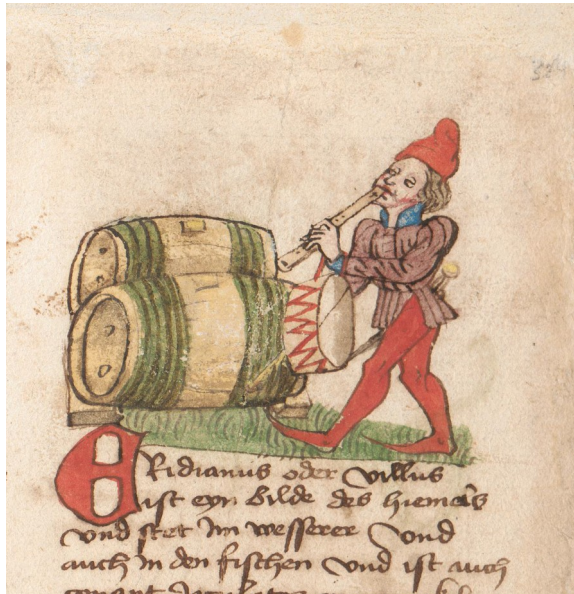 ERidianus oder villus
ist eyn bilde des hiemels
vnd stet Im wesserer vnd
auch In den fischen vnd ist auch
genant